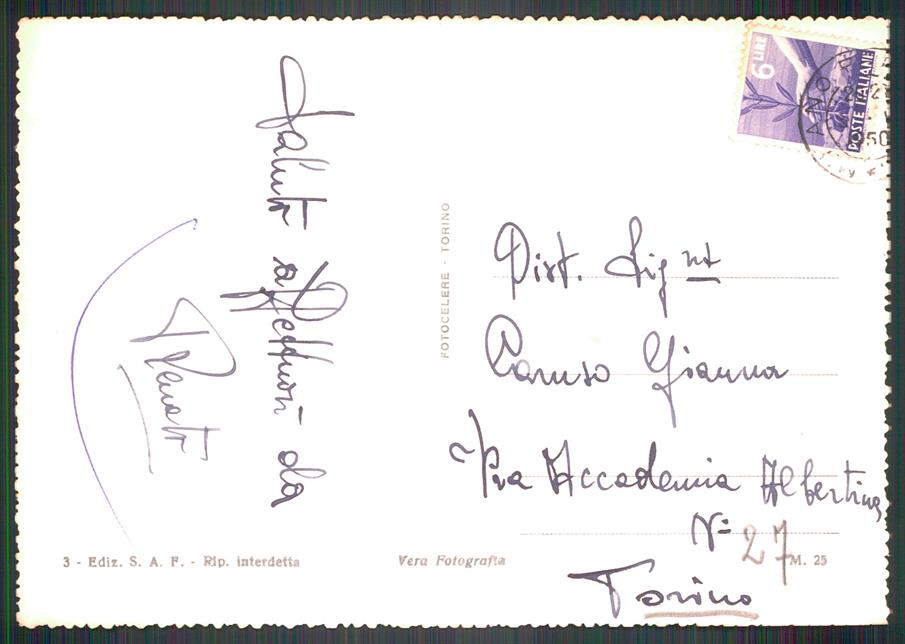 Saluti affettuosi da
Renato
FOTOCELERE - TORINO
6 LIRE
POSTE ITALIANE
ANO
50
Dist. Sig.na
Caruso Gianna
Via Accademia Albertina
N= 27
Torino
3 - Ediz. S. A. F. - Rip. interdetta
Vera Fotografia
M. 25